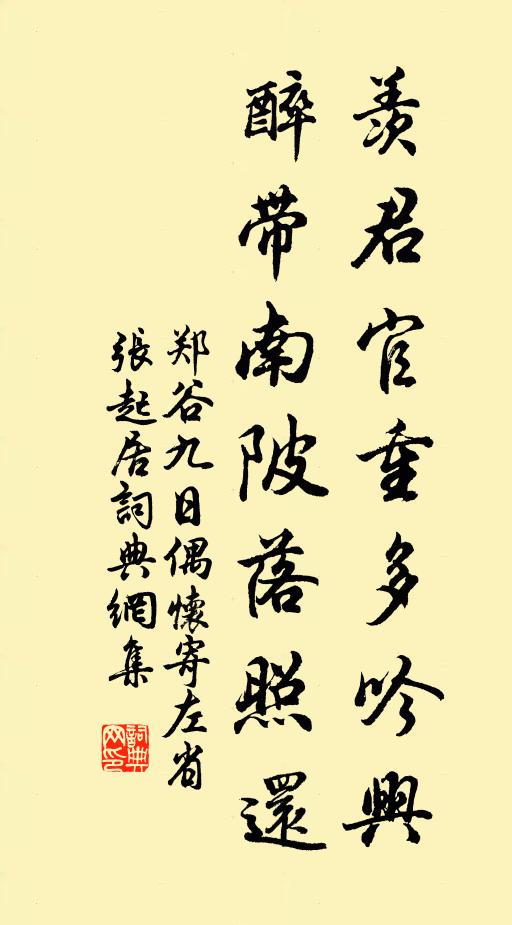 羨君官重多吟興
醉带南陂落照還
郑谷九日偶懷寄左省
張起居詞典網集
詞典
网印